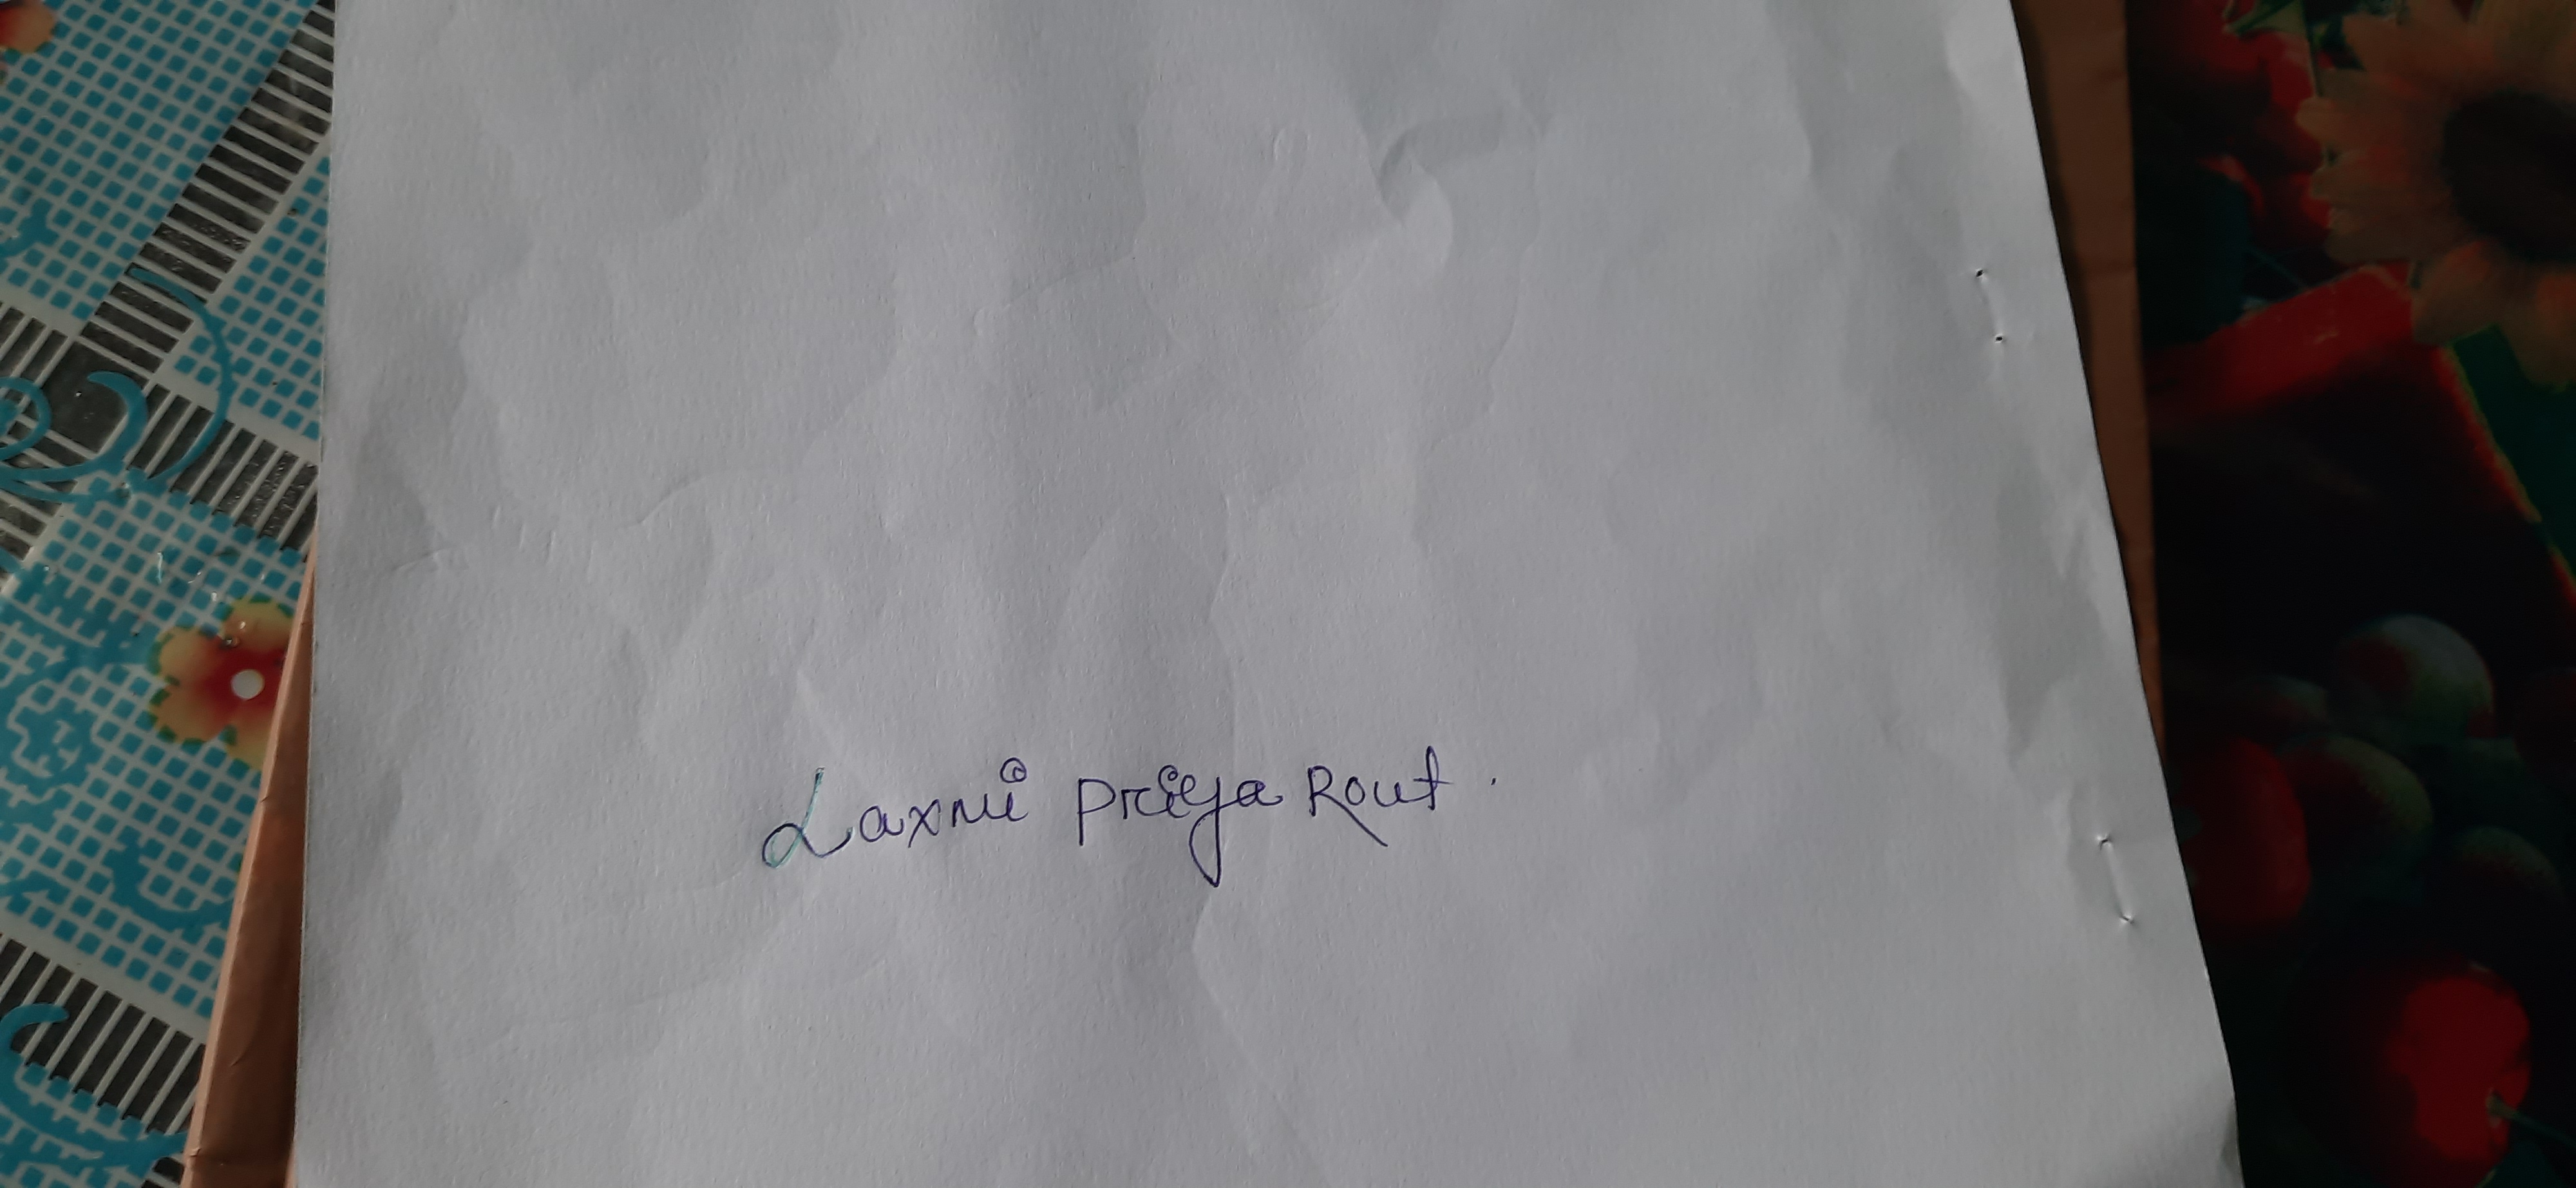 Laxmi Priya Rout.